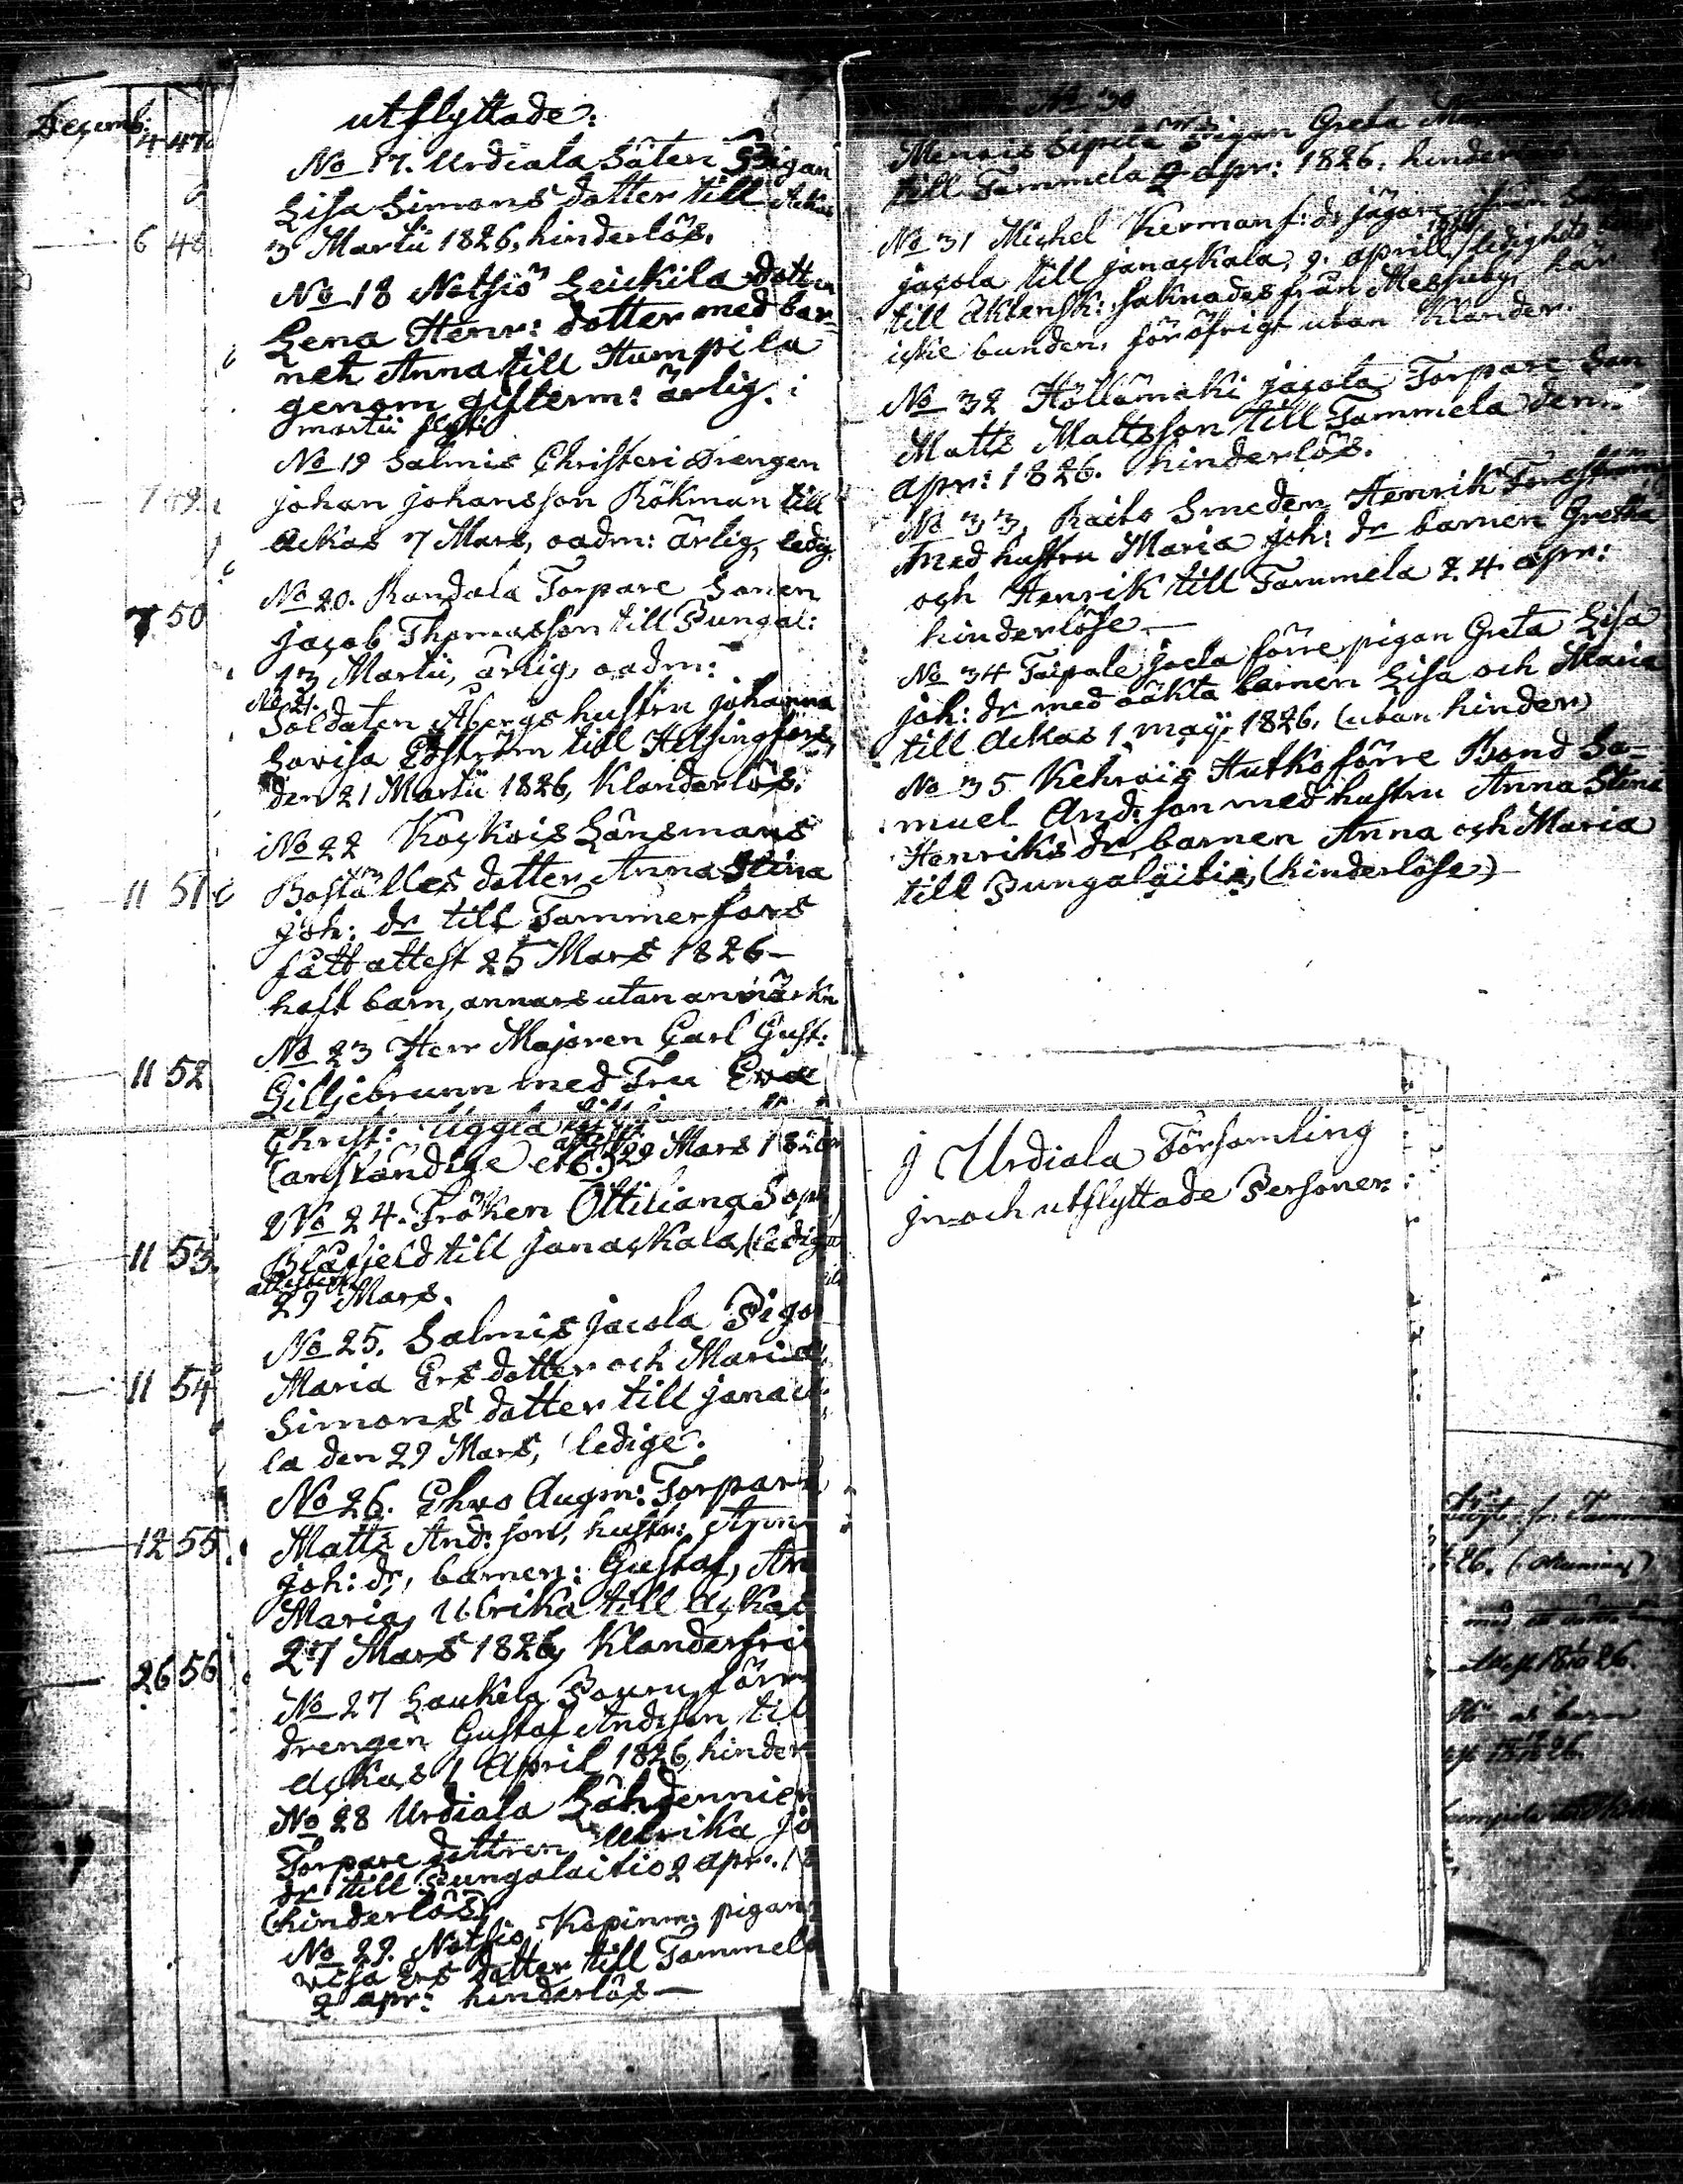 Decemb:
4 47
6 48
7 49
7 50
11 51
11 52
11 53.
11 54
12 55
26 56
utflyttade:
No 17. Urdiala Säteri Pigan
Lisa Simons dotter till Ackas
3 Martii 1826, hinderlös.
No 18 Notsiö Leickila dotter
Lena Henr: dotter med bar=
net Anna till Humpila
genom gifterm: ärlig.
martii
No 19 Salmis Christeri drengen
Johan Johansson Rökman till
Ackas 7 Mars, oadm: ärlig, ledig.
No 20. Randala Torpare Sonen
Jacob Thomasson till Pungal:
13 Martii, ärlig, oadm:
No 21.
Soldaten Åbergs hustru Johanna
Lovisa till Helsingfors,
den 21 Martii 1826, klanderlös.
No 22 Kockois Länsmans
Boställes dotter Anna Stina
Joh: dr till Tammerfors
fått attest 25 Mars 1826 —
haft barn, annars utan anmärkn
No 23 Herr Majoren Carl Gust:
Gilljebrunn med Fru Eva
Christ: Uggla
(anständige 29 Mars 1826
No 24. Fröken Ottiliana Soph
Blåfield till Janackala, (ledig
attesterad
29 Mars.
No 25. Salmis Jacola Pigor
Maria Ersdotter och Maria
Simons dotter till Janack
la den 29 Mars, ledige.
No 26. Ehro Augm: Torpare
Matts And: son, hustr: Ann
Joh: dr, barnen: Gustaf, An
Maria, Ulrika till Ackas
27 Mars 1826, Klanderfri
No 27 Laukela Pouru, förre
drengen Gustaf Andsson till
Ackas 1 April 1826, hinder
No 28 Urdiala
Torpare dottren Ulrika Jo
dr till Pungalaitio 2 apr. 18
(hinderlös)
No 29. Notsiö, Kopinm: pigan
visa Ers dotter till Tammela
2 apr: hinderlös —
No 30
Menois Sipilä Pigan Greta
till Tammela 2 apr: 1826. hinder
No 31 Michel Kerman f: d. jägare, ifrån
Jacola till Janackala, 9. aprill, ledighets
till Äktensk: saknades från Messuby, här
ickie bunden, för öfrigt utan Klander.
No 32 Höllämäki Jacola Torpare Son
Matts Mattsson till Tammela den
apr: 1826. hinderlös.
No 33, Raito Smeden Henrik
med hustru Maria Joh: dr barnen Gretha
och Henrik till Tammela 24 apr:
hinderlöse —
No 34 Taipale Joela förre pigan Greta Lisa
Joh: dr med oäkta barnen Lisa och Maria
till Ackas 1 maji 1826. (utan hinder)
No 35 Kehrois Hutko förre Bond Sa=
muel And: son med hustru Anna Stina
Henriks dr, barnen Anna och Maria
till Pungalaitio, (hinderlöse) —
J Urdiala Församling
jn= och utflyttade Personer: